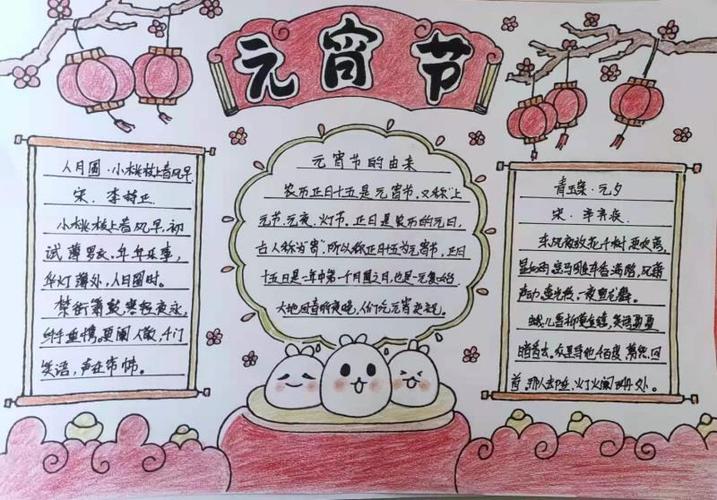 元宵节
人月圆·小桃枝上春风早
宋·李持正
小桃枝上春风早,初
试薄罗衣,年年乐事,
华灯竞处,人月圆时。
禁街箫鼓,寒轻夜永,
纤手重携,更阑人散,千门
笑语,声在帘帏。
元宵节的由来
农历正月十五是元宵节,又称上
元节、元夜、灯节。正月是农历的元月,
古人称为宵,所以称正月十五为元宵节,正月
十五日是一年中第一个月圆之日,也是一元复始
大地回春的夜晚,人们吃元宵
青玉案·元夕
宋·辛弃疾
东风夜放花千树,更吹落,
星如雨,宝马雕车香满路,凤箫
声动,壶光转,一夜鱼龙舞。
蛾儿雪柳黄金缕,笑语盈盈
暗香去,众里寻他千百度,蓦然回
首,那人却在,灯火阑珊处。